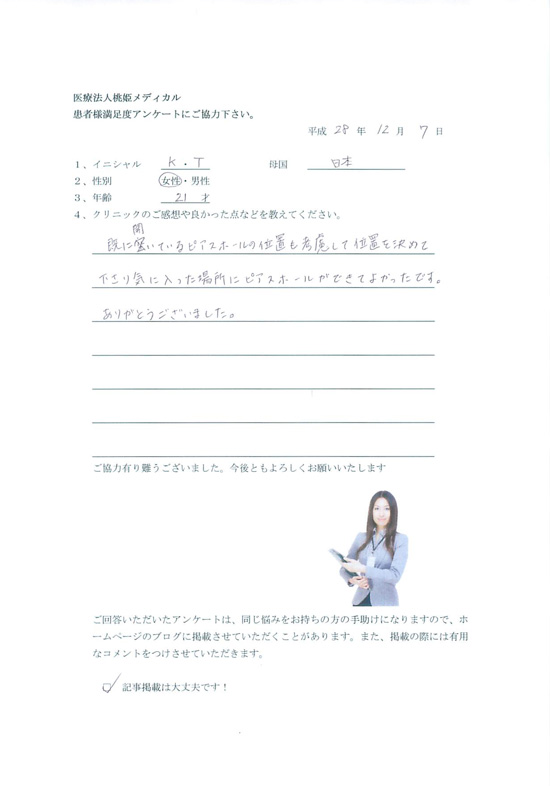 医療法人桃姫メディカル
患者様満足度アンケートにご協力下さい。
平成 28 年 12 月 7 日
1、イニシャル K・T 母国 日本
2、性別 女性・男性
3、年齢 21 才
4、クリニックのご感想や良かった点などを教えてください。
開
既に空いているピアスホールの位置も考慮して位置を決めて
下さり気に入った場所にピアスホールができてよかったです。
ありがとうございました。
ご協力有り難うございました。今後ともよろしくお願いいたします
ご回答いただいたアンケートは、同じ悩みをお持ちの方の手助けになりますので、ホ
ームページのブログに掲載させていただくことがあります。また、掲載の際には有用
なコメントをつけさせていただきます。
記事掲載は大丈夫です！